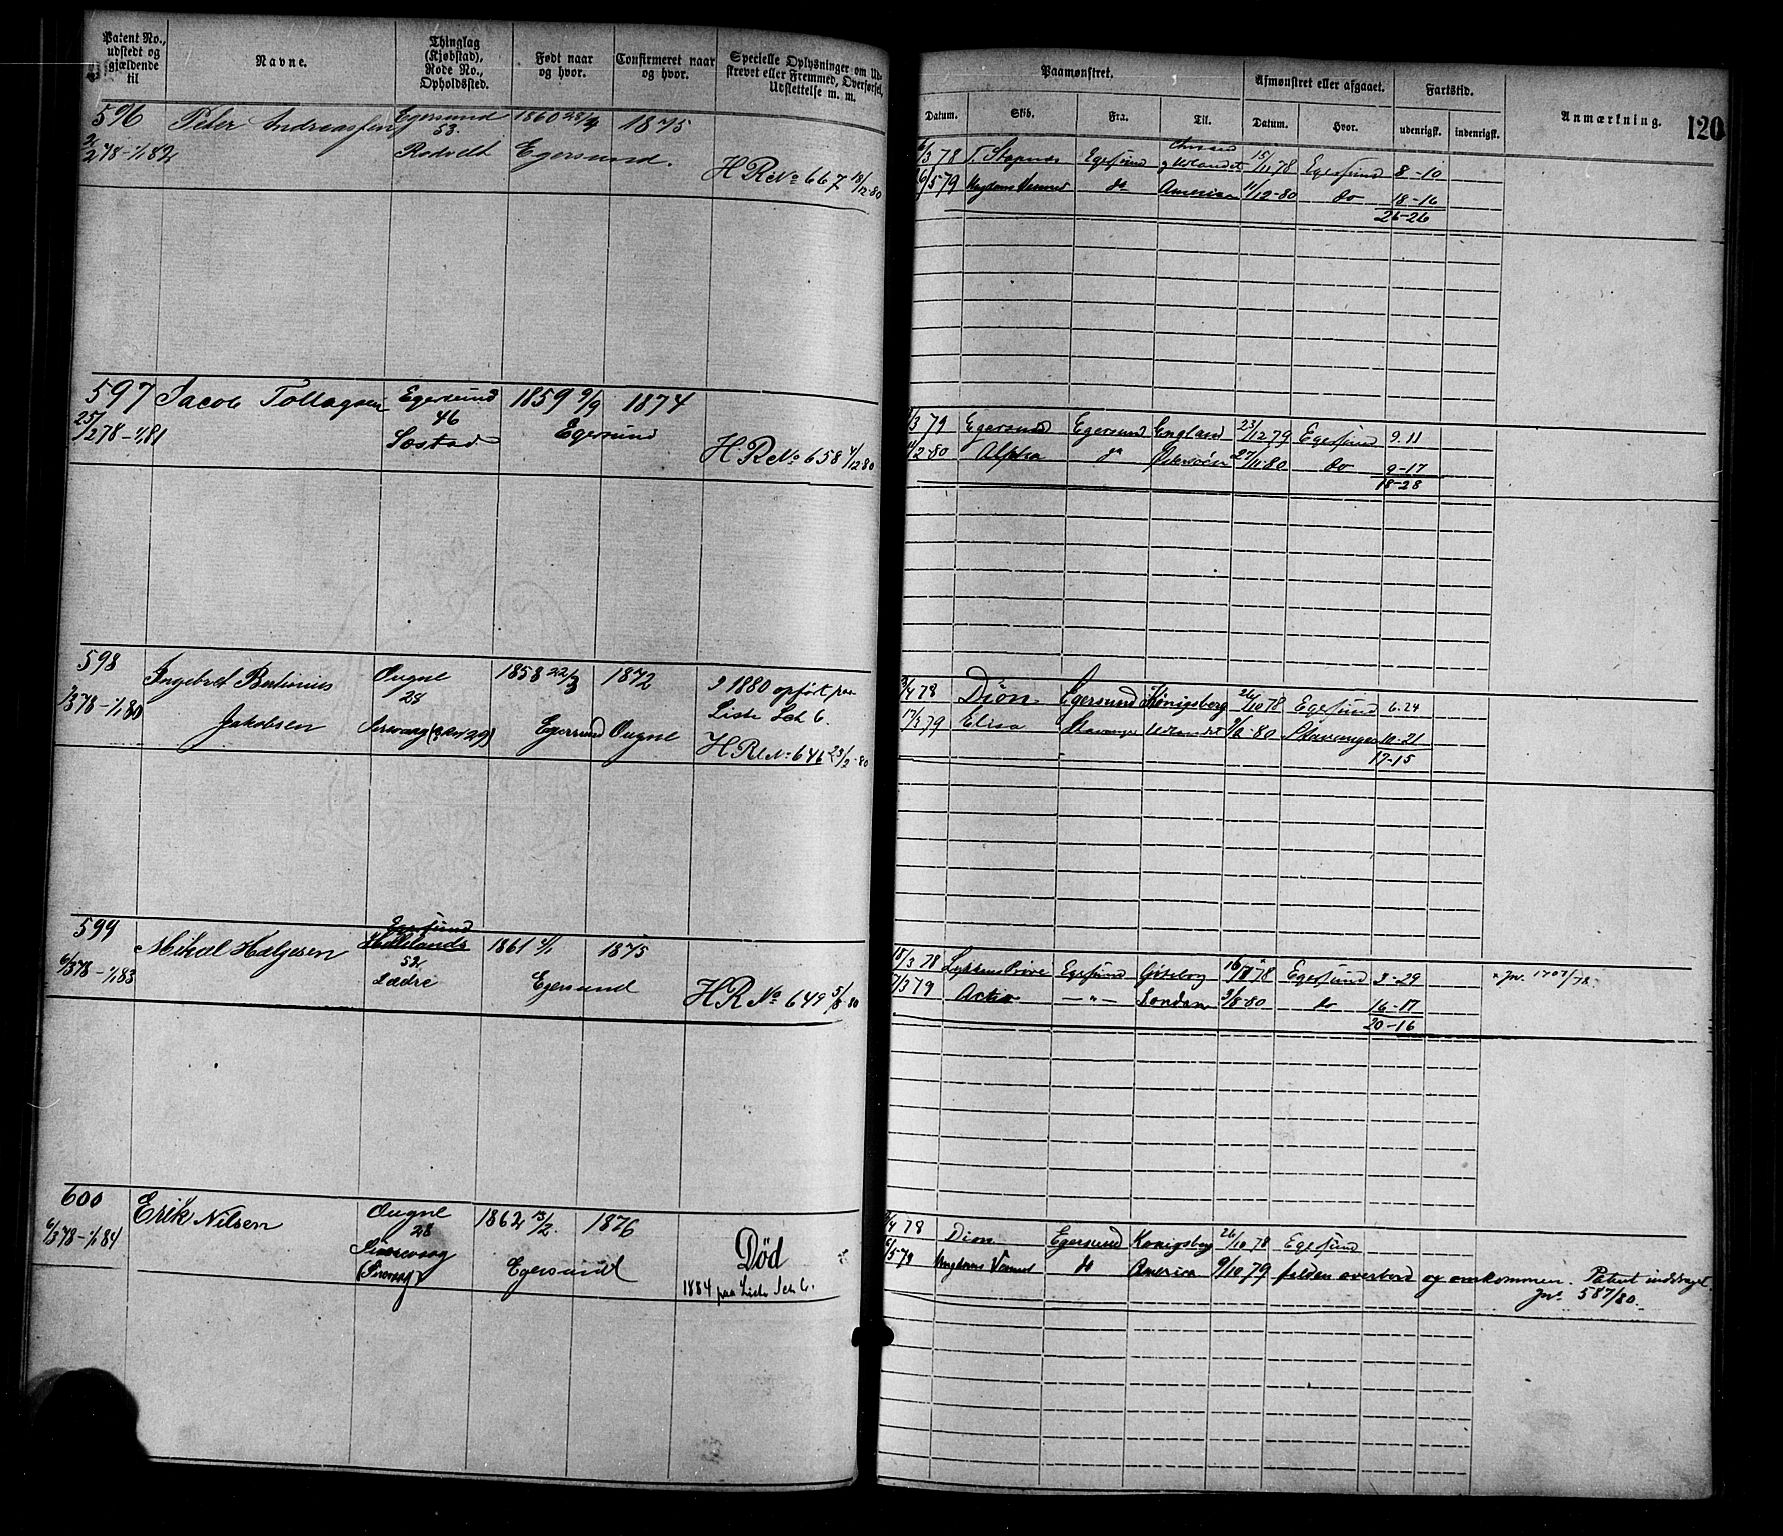 Patent No., udstedt og gjældende til
Navne.
Thinglag (Kjøbstad), Rode No., Opholdssted.
Født naar og hvor.
Confirmeret naar og hvor.
Specielle Oplysninger om Udskrevet eller Fremmed, Overførsel, Udslettelse m. m.
Paamønstret.
Afmønstret eller afgaaet.
Fartstid.
Anmærkning.
120
Datum.
Skib.
Fra.
Til.
Datum.
Hvor.
udenrigsk.
indenrigsk.
596 Peter Andreassen Egersund 1860 1875
53
Rødvelt Egersund.
2/2 78 - 1/1 82
H R No 667 18/12-80
6/3 78 Egersund 15/11 78 Egersund 8-10
6/5 79 do America 11/12-80 do 18-16
26-26
597 Jacob Tollagsen Egersund 1859 9/9 1874
46 Egersund
25/2 78 - 1/1 81
H R No 658 4/12 80
/3 79 Egersund Egersund England 23/12 79 Egersund 9.11
/2-80 Alpha do Østersøen 27/11-80 do 9-17
18-28
598 Ingebret Bertinius Ougne 1858 22/3 1872 I 1880 opført paa
28 Liste Sch 6.
1/3 78 - 1/1 80 Jakobsen Egersund Ougne
H R No 646 23/2-80
/4 78 Dion Egersund Königsberg 26/10 78 Egersund 6.24
17/3 79 Elisa Stavanger -80 Stavanger 10-21
17-15
599 Mikal Helgesen Egersund 1861 4/1 1875
52
6/3 78 - 1/1 83 Egersund
H R No 649 5/8 80
18/3 78 Egersund Gøteborg 78 Egersund 3-29 Jn. 1707/78.
/3 79 Activ -"- London 9/8-80 do 16-17
20-16
600 Erik Nilsen Ougne 1862 13/2. 1876
28
6/3 78 - 1/1 84 Sirevaag
(Sirevaag) Egersund
Død
1884 paa Liste Sch 6.
/4 78 Dion Egersund Kønigsberg 26/10 78 Egersund
6/5 79 do America 9/10 79 falden overbord og omkommen. Patent inddraget.
Jn. 587/80.